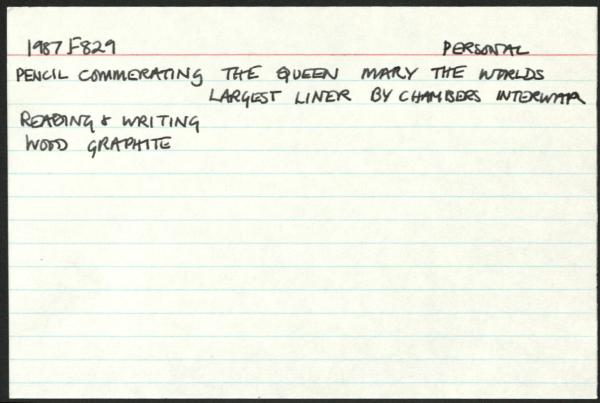 1987F829 PERSONAL
PENCIL COMMERATING THE QUEEN MARY THE WORLDS
LARGEST LINER BY CHAMBERS INTERWAR
READING & WRITING
WOOD GRAPHITE